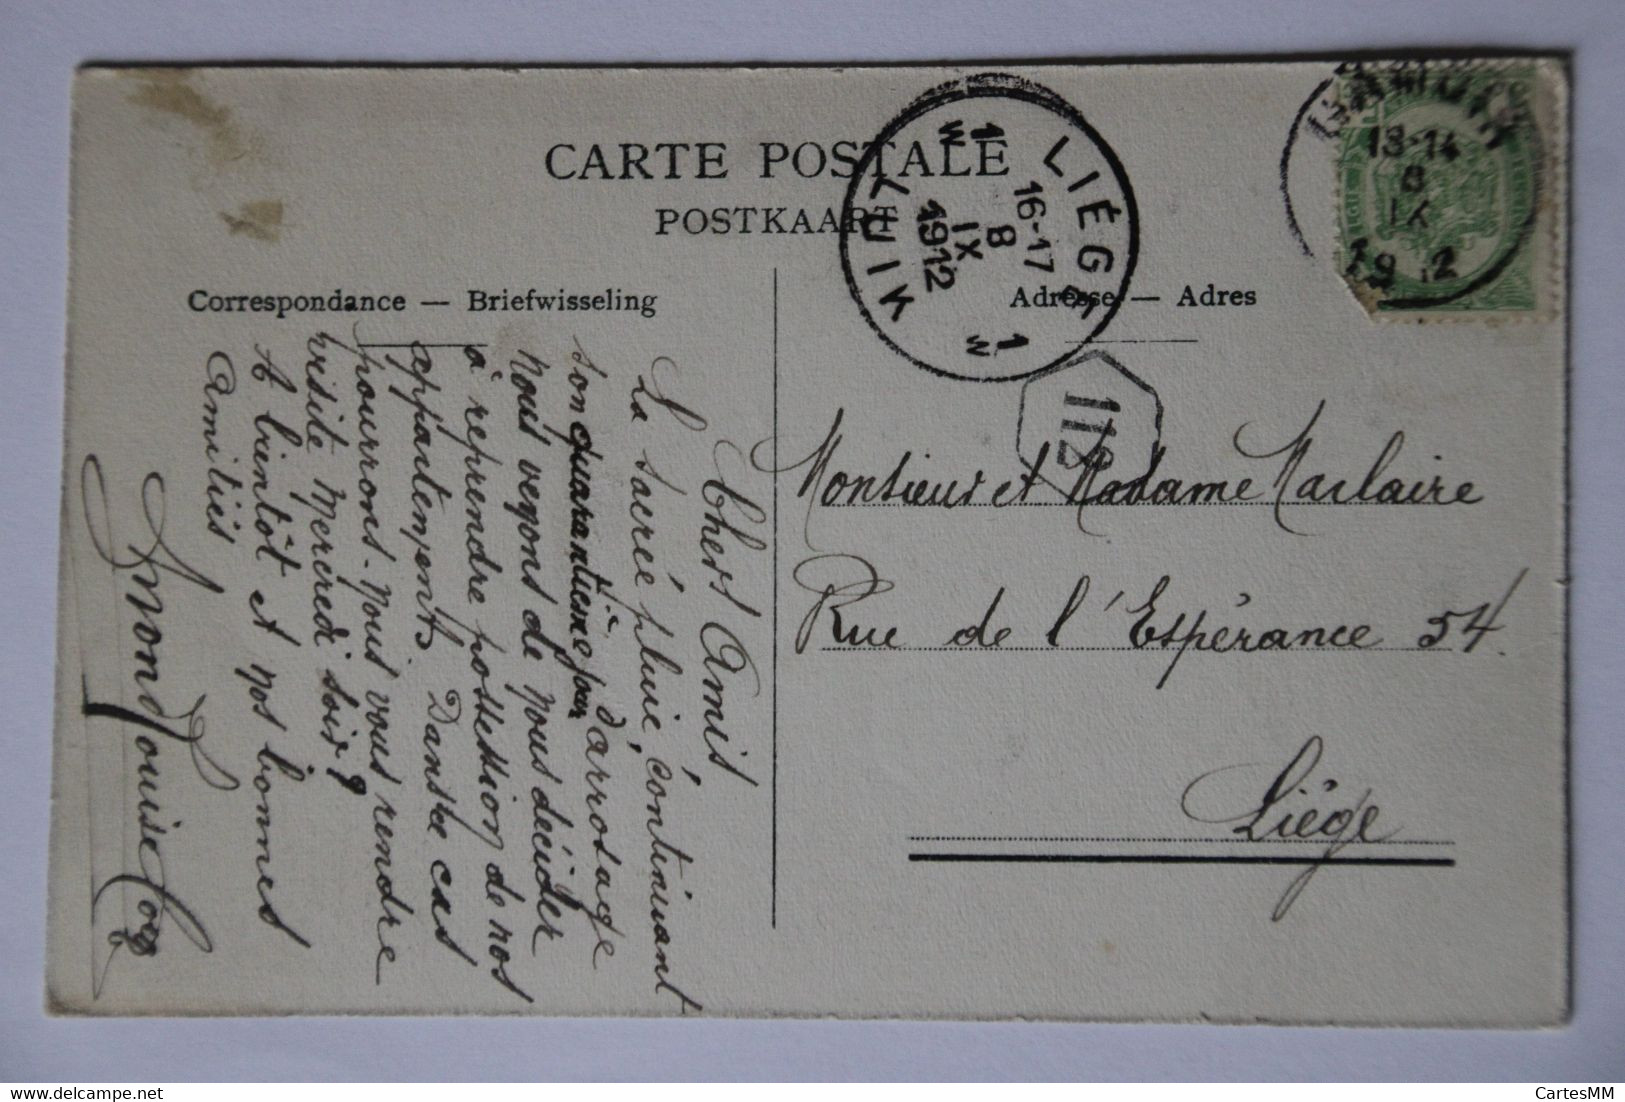 CARTE POSTALE
POSTKAART
Correspondance — Briefwisseling
Adresse — Adres
LIÉGE
16-17
8
IX
1912
LUIK
1 W
1 W
13-14
8
IX
1912
112
Monsieur et Madame Marlaire
Rue de l'Espérance 54.
Liége
Chers Amis,
La sacré pluie, continuant
son quarantième jour d'arrosage
nous vegons de nous décider
à reprendre possession de nos
appartements. Dans ce cas
pourrons-nous vous rendre
visite Mercredi soir?
A bientôt et nos bonnes
Amitiés
CartesMM